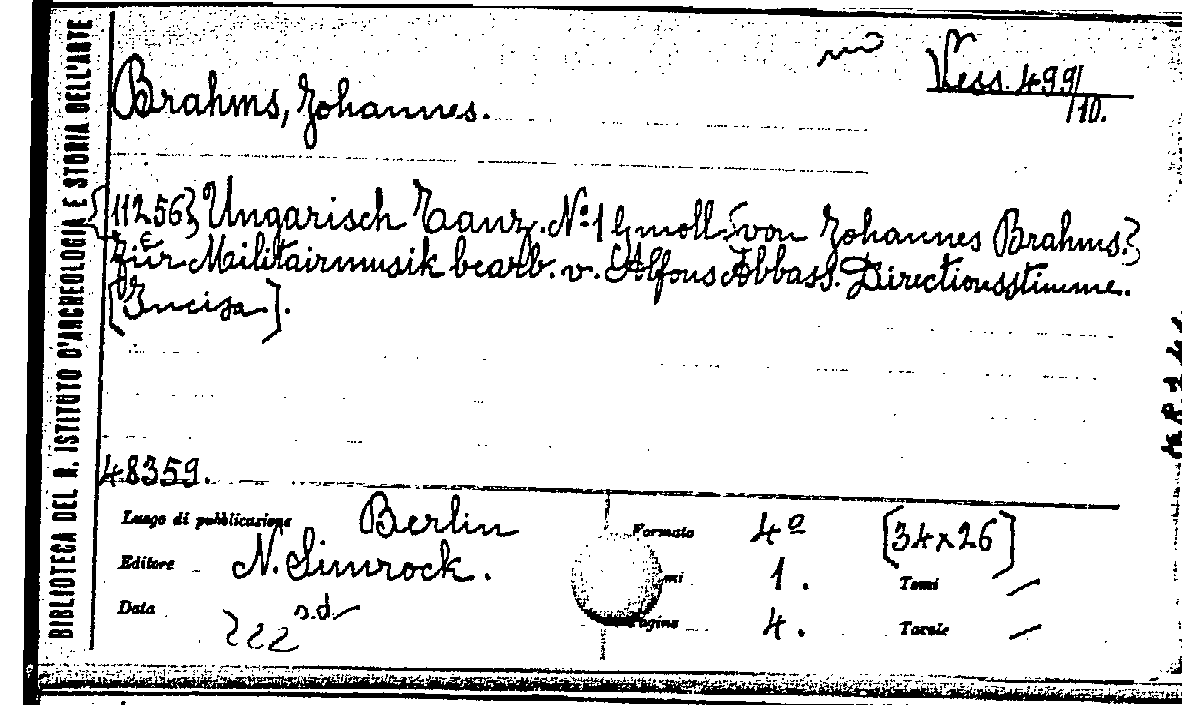 BIBLIOTECA DEL R. ISTITUTO D'ARCHEOLOGIA E STORIA DELL'ARTE
Vess. 499/10.
Brahms, Johannes.
{11256} Ungarisch Tanz. Nº 1 Gmoll {von Johannes Brahms.}
für Militairmusik bearb. v. Alfons Abbass. Directionsstimme.
[Incisa].
48359.
Luogo di pubblicazione Berlin Formato 4º [34x26]
Editore N. Simrock. 1. Tomi /
Data s.d. Pagine 4. Tavole /